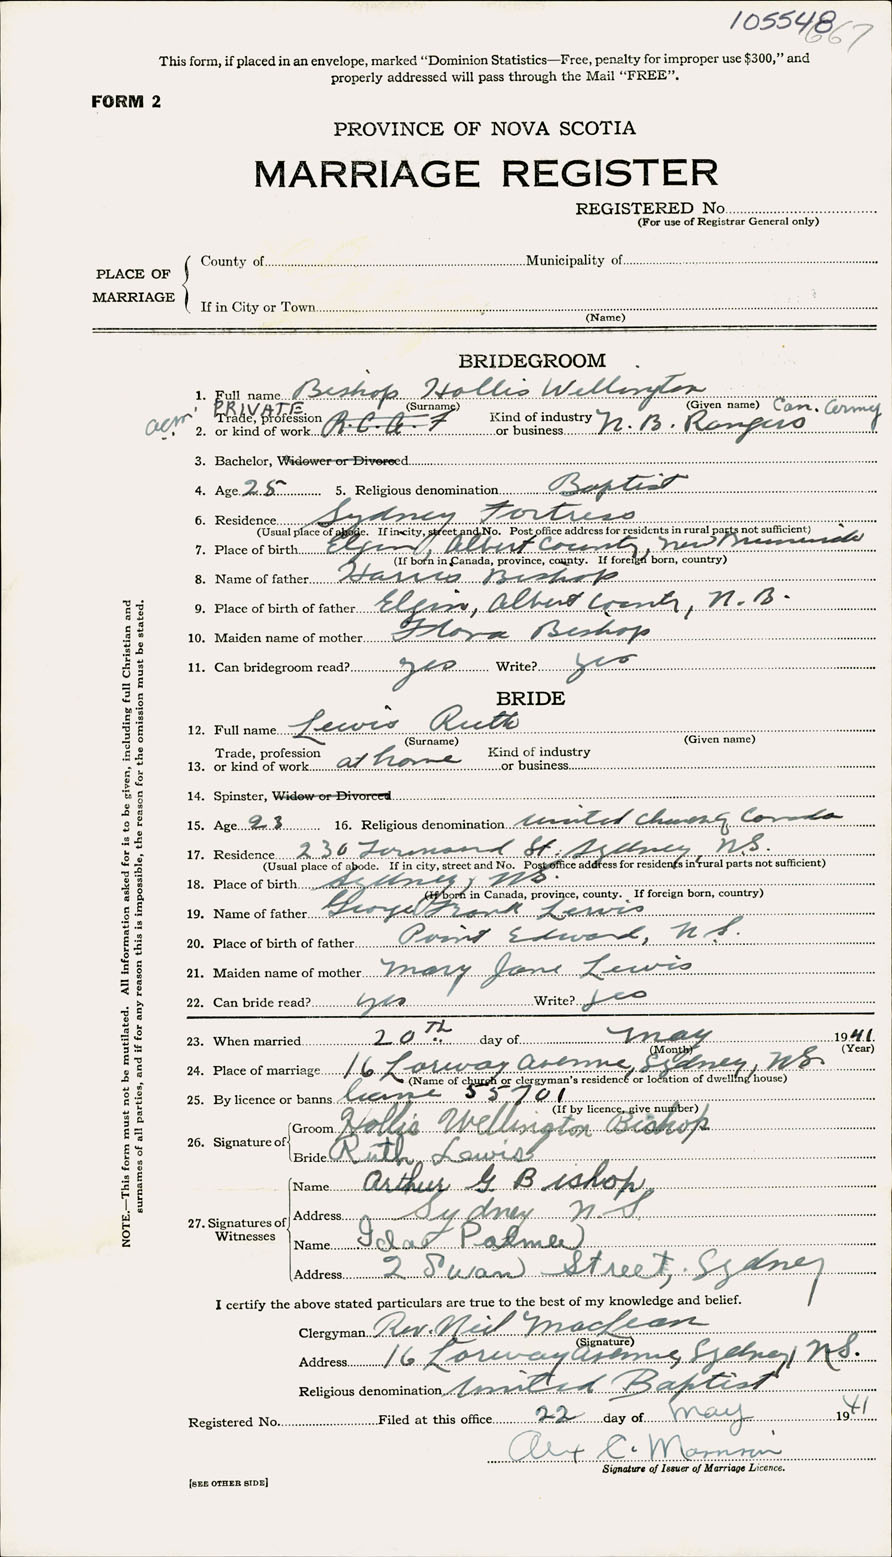 105548
667
This form, if placed in an envelope, marked "Dominion Statistics—Free, penalty for improper use $300," and
properly addressed will pass through the Mail "FREE".
FORM 2
PROVINCE OF NOVA SCOTIA
MARRIAGE REGISTER
REGISTERED No.
(For use of Registrar General only)
PLACE OF MARRIAGE
County of Municipality of
If in City or Town
(Name)
BRIDEGROOM
1. Full name Bishop Hollis Wellington
(Surname) (Given name)
acm. PRIVATE Can. Army
2. Trade, profession or kind of work R.C.A.F Kind of industry or business N. B. Rangers
3. Bachelor, Widower or Divorced
4. Age 25 5. Religious denomination Baptist
6. Residence Sydney Fortress
(Usual place of abode. If in city, street and No. Post office address for residents in rural parts not sufficient)
7. Place of birth Elgin, Albert County, New Brunswick
(If born in Canada, province, county. If foreign born, country)
8. Name of father Harris Bishop
9. Place of birth of father Elgin, Albert County, N.B.
10. Maiden name of mother Flora Bishop
11. Can bridegroom read? yes Write? yes
BRIDE
12. Full name Lewis Ruth
(Surname) (Given name)
13. Trade, profession or kind of work at home Kind of industry or business
14. Spinster, Widow or Divorced
15. Age 23 16. Religious denomination United Church of Canada
17. Residence 230 Townsend St. Sydney, N.S.
(Usual place of abode. If in city, street and No. Post office address for residents in rural parts not sufficient)
18. Place of birth Sydney, N.S.
(If born in Canada, province, county. If foreign born, country)
19. Name of father George Frank Lewis
20. Place of birth of father Point Edward, N.S.
21. Maiden name of mother Mary Jane Lewis
22. Can bride read? yes Write? yes
23. When married 20TH day of May 1941.
(Month) (Year)
24. Place of marriage 16 Lorway Avenue, Sydney, N.S.
(Name of church or clergyman's residence or location of dwelling house)
25. By licence or banns license 55701
(If by licence, give number)
26. Signature of
Groom Hollis Wellington Bishop
Bride Ruth Lewis
27. Signatures of Witnesses
Name Arthur G Bishop
Address Sydney N.S.
Name Palmer
Address 2 Swan Street, Sydney
I certify the above stated particulars are true to the best of my knowledge and belief.
Clergyman Rev. Neil MacLean
(Signature)
Address 16 Lorway Avenue, Sydney, N.S.
Religious denomination United Baptist
Registered No. Filed at this office 22 day of May 1941
Alex C.
Signature of Issuer of Marriage Licence.
[SEE OTHER SIDE]
NOTE.—This form must not be mutilated. All information asked for is to be given, including full Christian and
surnames of all parties, and if for any reason this is impossible, the reason for the omission must be stated.